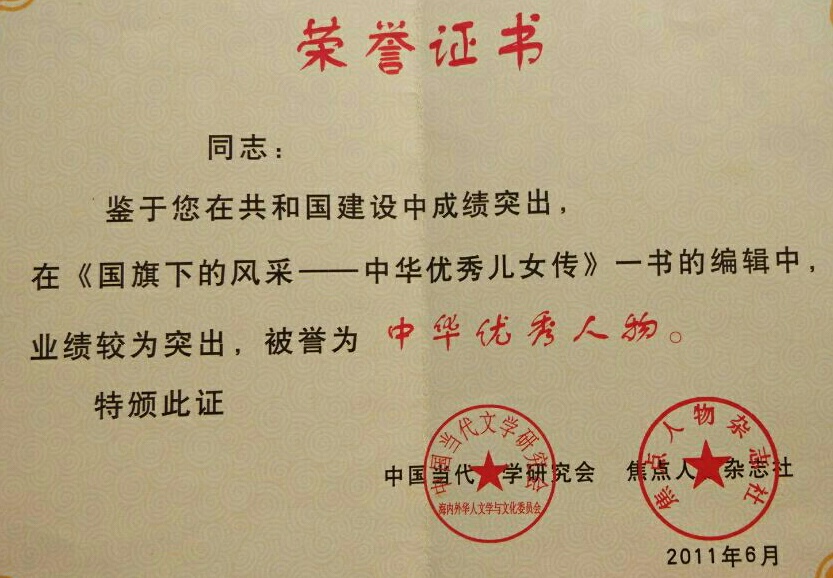 荣誉证书
同志：
鉴于您在共和国建设中成绩突出，
在《国旗下的风采——中华优秀儿女传》一书的编辑中，
业绩较为突出，被誉为 中华优秀人物。
特颁此证
中国当代文学研究会 焦点人物杂志社
中国当代文学研究会
海内外华人文学与文化委员会
焦点人物杂志社
2011年6月